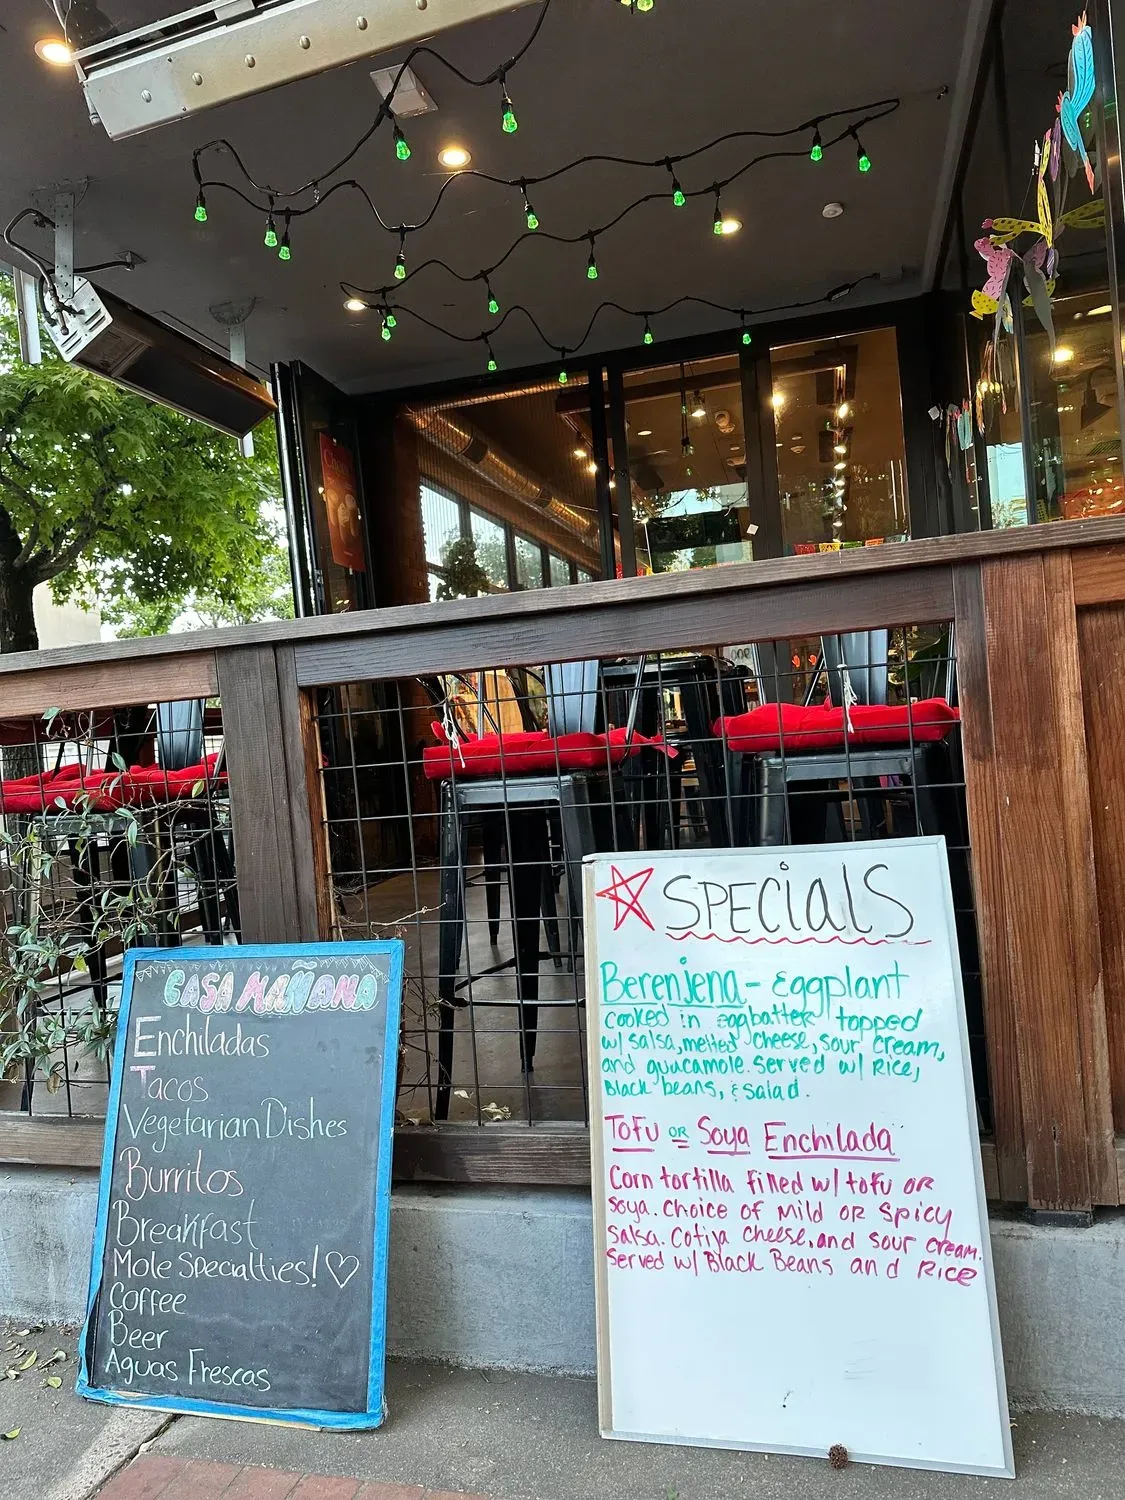 CASA MAÑANA
Enchiladas
Tacos
Vegetarian Dishes
Burritos
Breakfast
Mole Specialties!
Coffee
Beer
Aguas Frescas
SPECiAlS
Berenjena - Eggplant
cooked in eggbatter topped
w/ salsa, melted cheese, sour cream,
and guacamole. Served w/ Rice,
Black beans, & salad.
TOFU OR Soya Enchilada
Corn tortilla filled w/ tofu OR
soya. Choice of Mild OR Spicy
Salsa. Cotija cheese, and sour cream.
Served w/ Black Beans and Rice